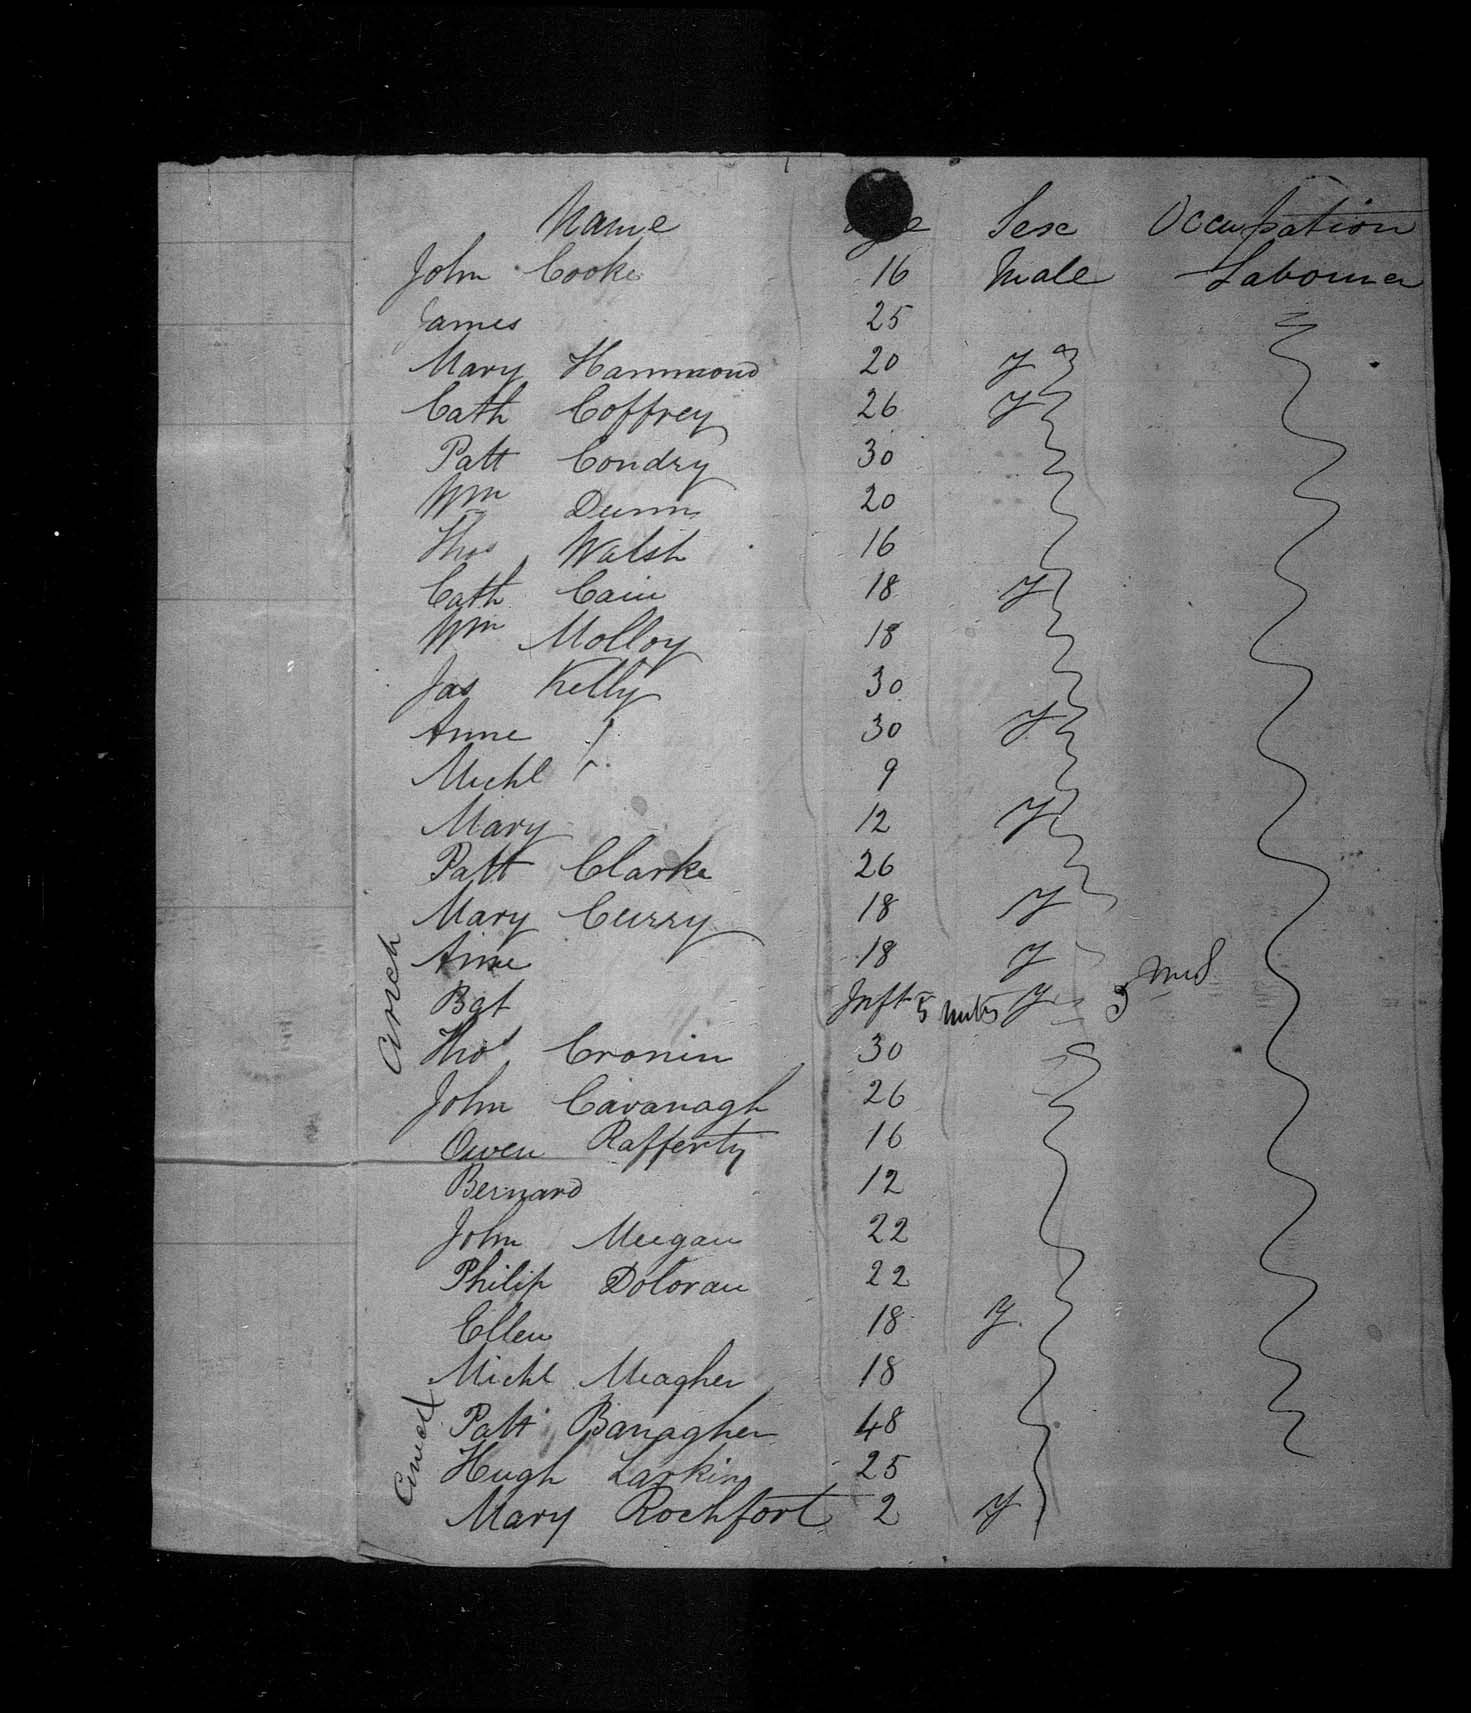 Name Age Sex Occupation
John Cooke 16 Male Labourer
James 25
Mary Hammond 20 F
Cath Coffrey 26 F
Patt Condry 30
Wm Dunn 20
Thos Walsh 16
Cath Cain 18 F
Wm Molloy 18
Jas Kelly 30
Anne 30 F
Michl 9
Mary 12 F
Patt Clarke 26
Mary Curry 18 F
Anne 18 F
Bgt Inft 5 mths F
Thos Cronin 30
John Cavanagh 26
Owen Rafferty 16
Bernard 12
John Meegan 22
Philip Doloran 22
Ellen 18 F
Michl Meagher 18
Patt Banagher 48
Hugh Larkin 25
Mary Rochfort 2 F